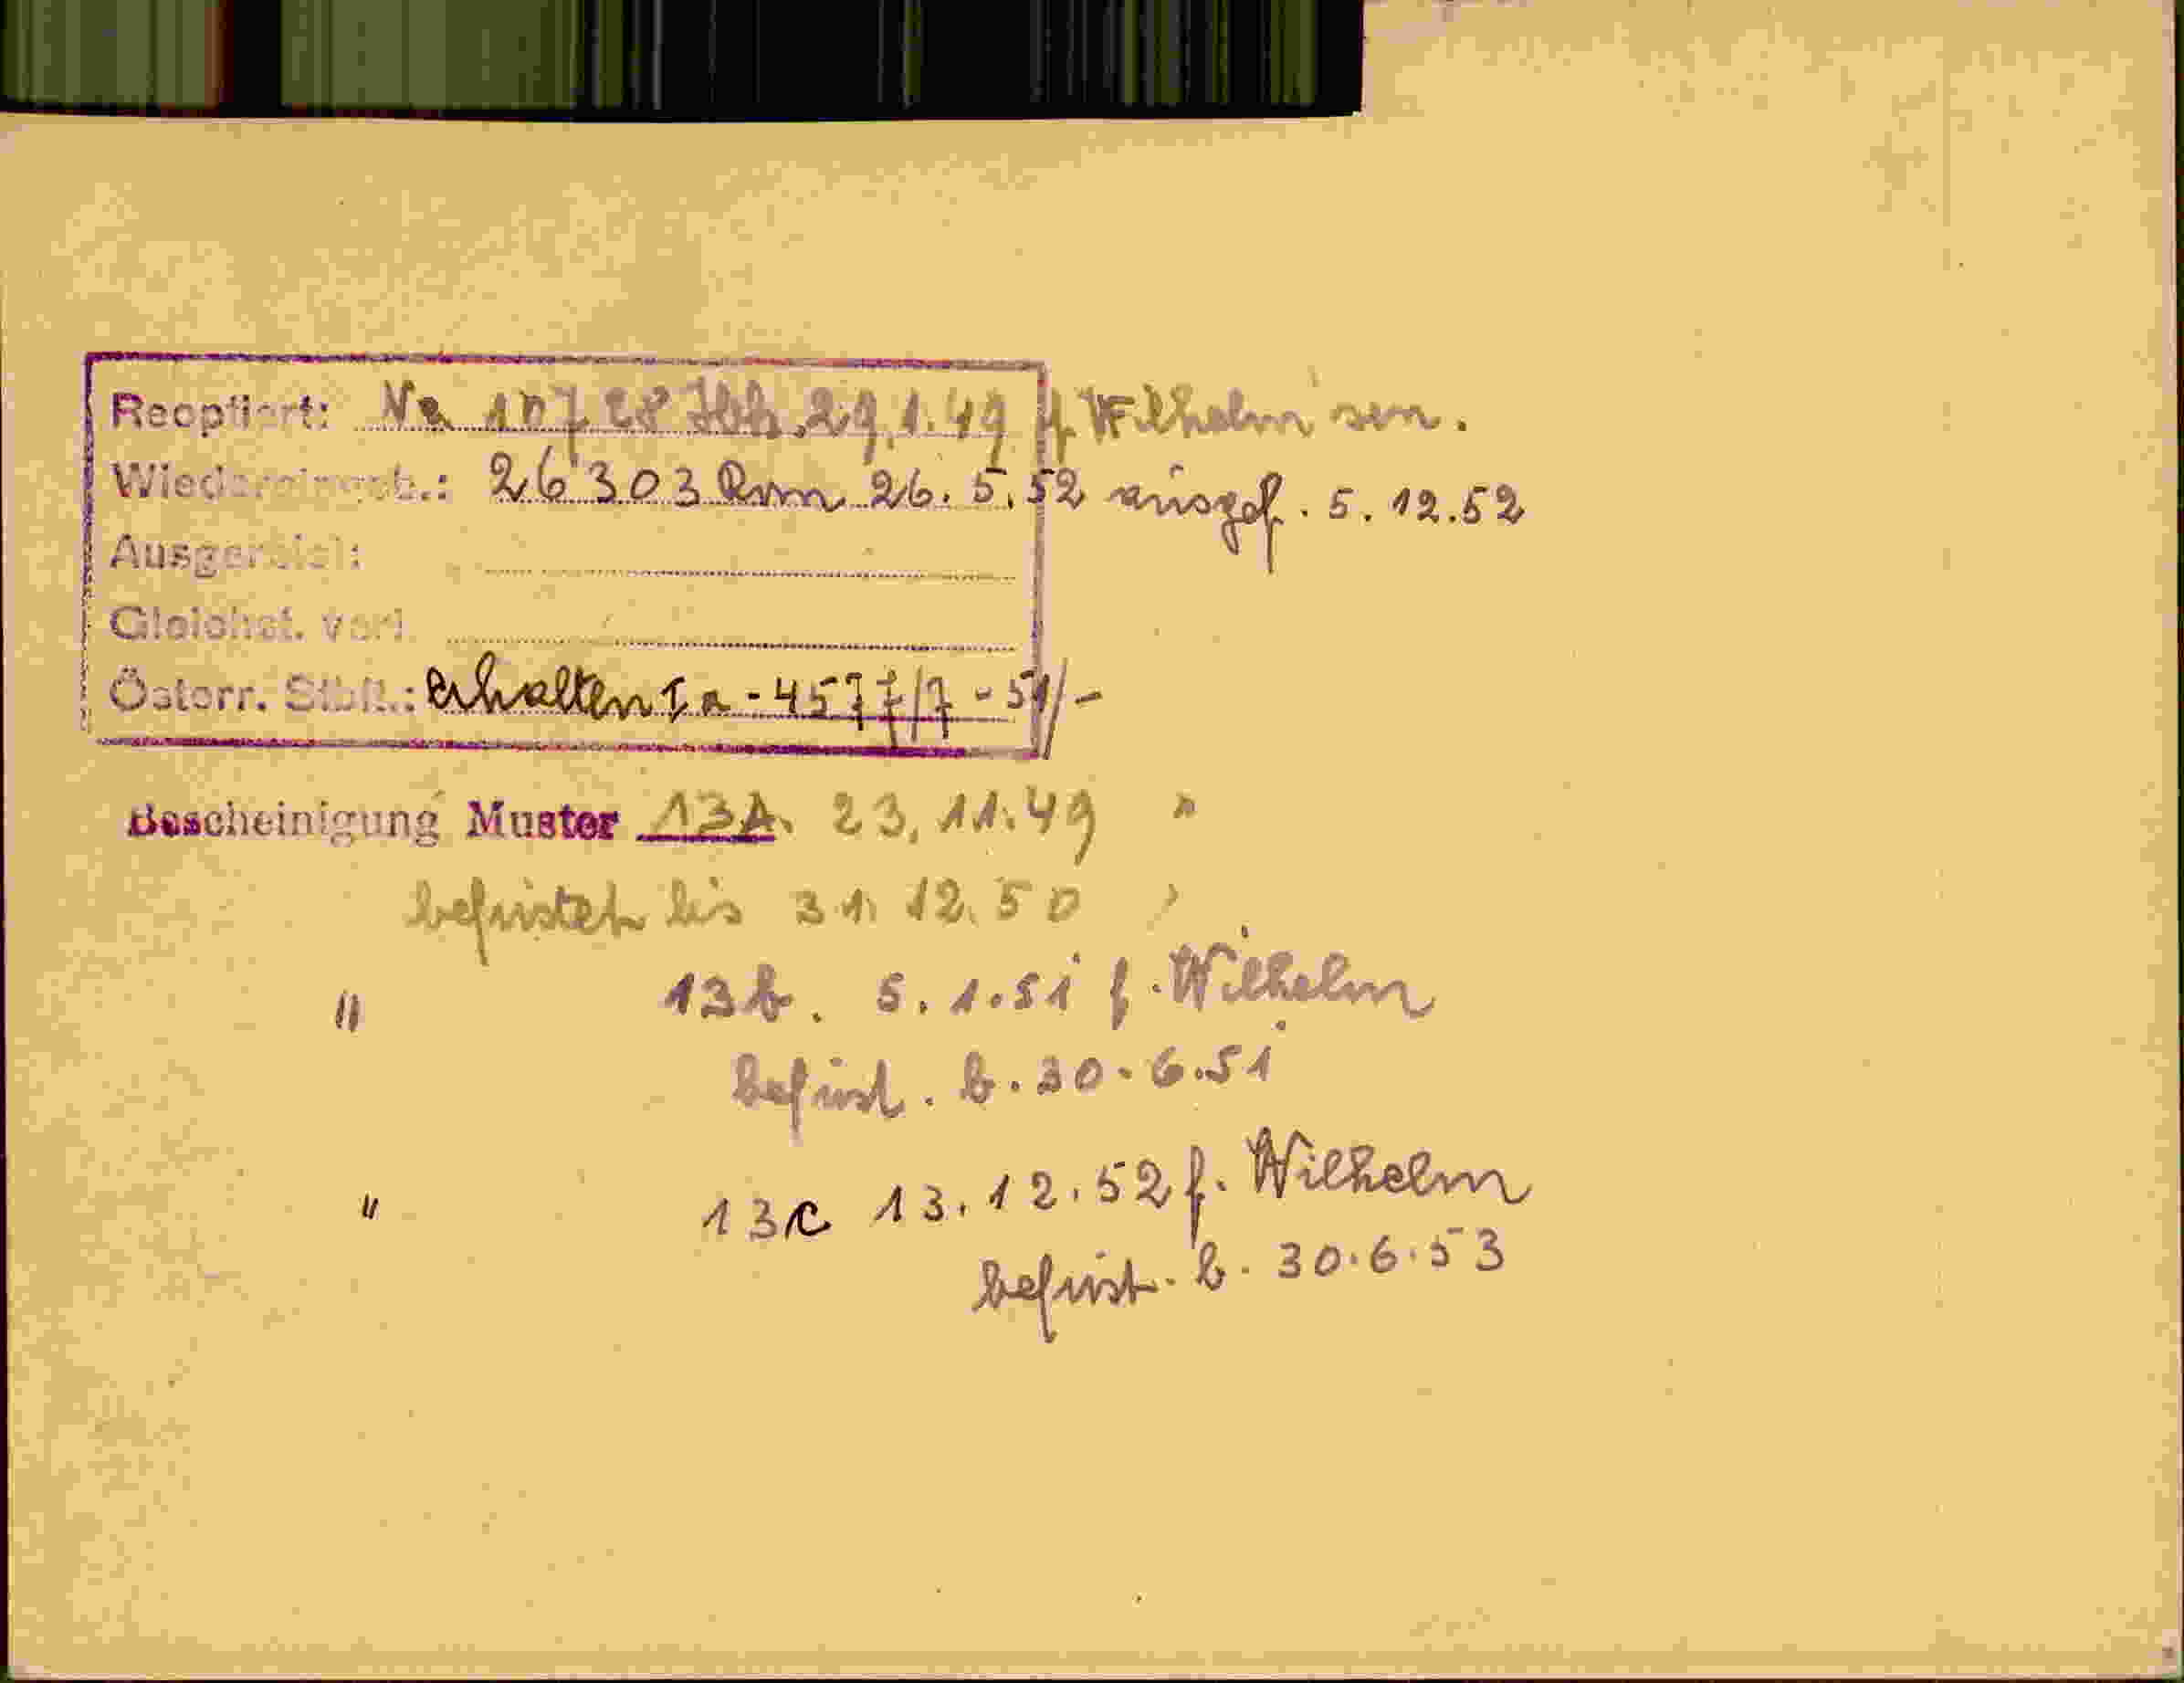 Reoptiert: Na 10728 Ibk. 29.1.49 f. Wilhelm sen.
Wiedereingeb.: 26303 Rom 26.5.52 ausgef. 5.12.52
Ausgereist:
Gleichst. verl.
Österr. Stbft.: erhalten Ia - 4577/7 - 51/-
Bescheinigung Muster 13A. 23.11.49 "
befristet bis 31.12.50 "
" 13b. 5.1.51 f. Wilhelm
befrist. b. 30.6.51
" 13c 13.12.52 f. Wilhelm
befrist. b. 30.6.53